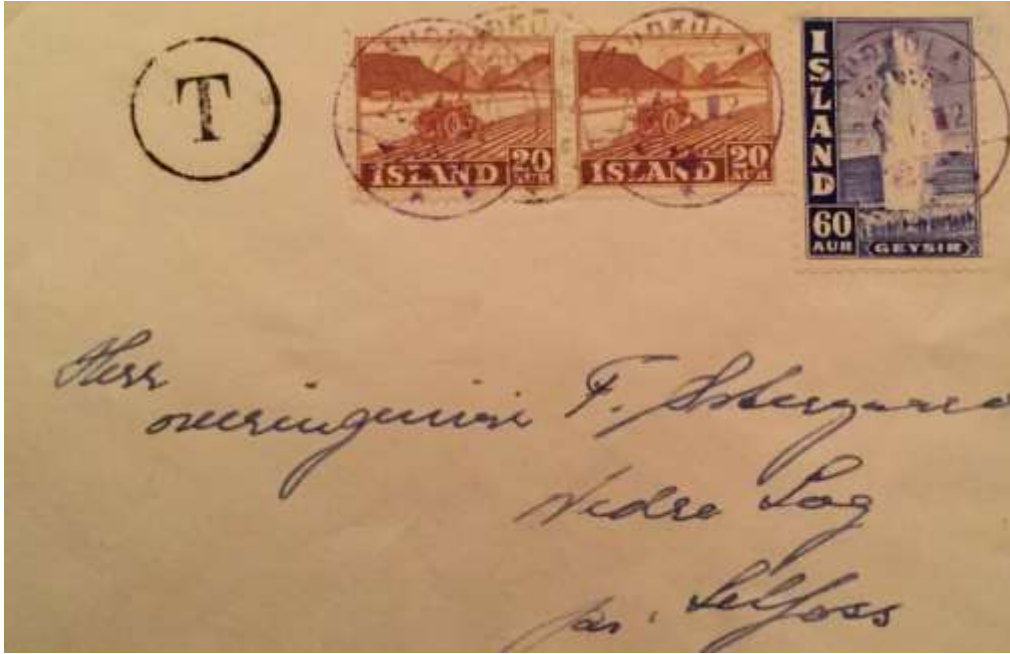 T
ISLAND 20 AUR
ISLAND 20 AUR
ISLAND
60 AUR
GEYSIR
Herr
overingeniør F. Østergaard
Nedre Sog
pr. Selfoss